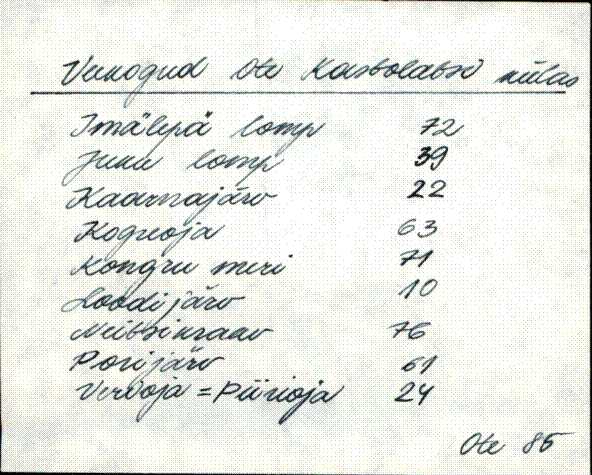 Veekogud Ote Kastolatsi külas
Imälepä lomp 72
Juku lomp 39
Kaarnajärv 22
Kogreoja 63
Kongru meri 71
Loodijärv 10
Neitsikraav 76
Porijärv 61
Verioja = Piirioja 24
Ote 85